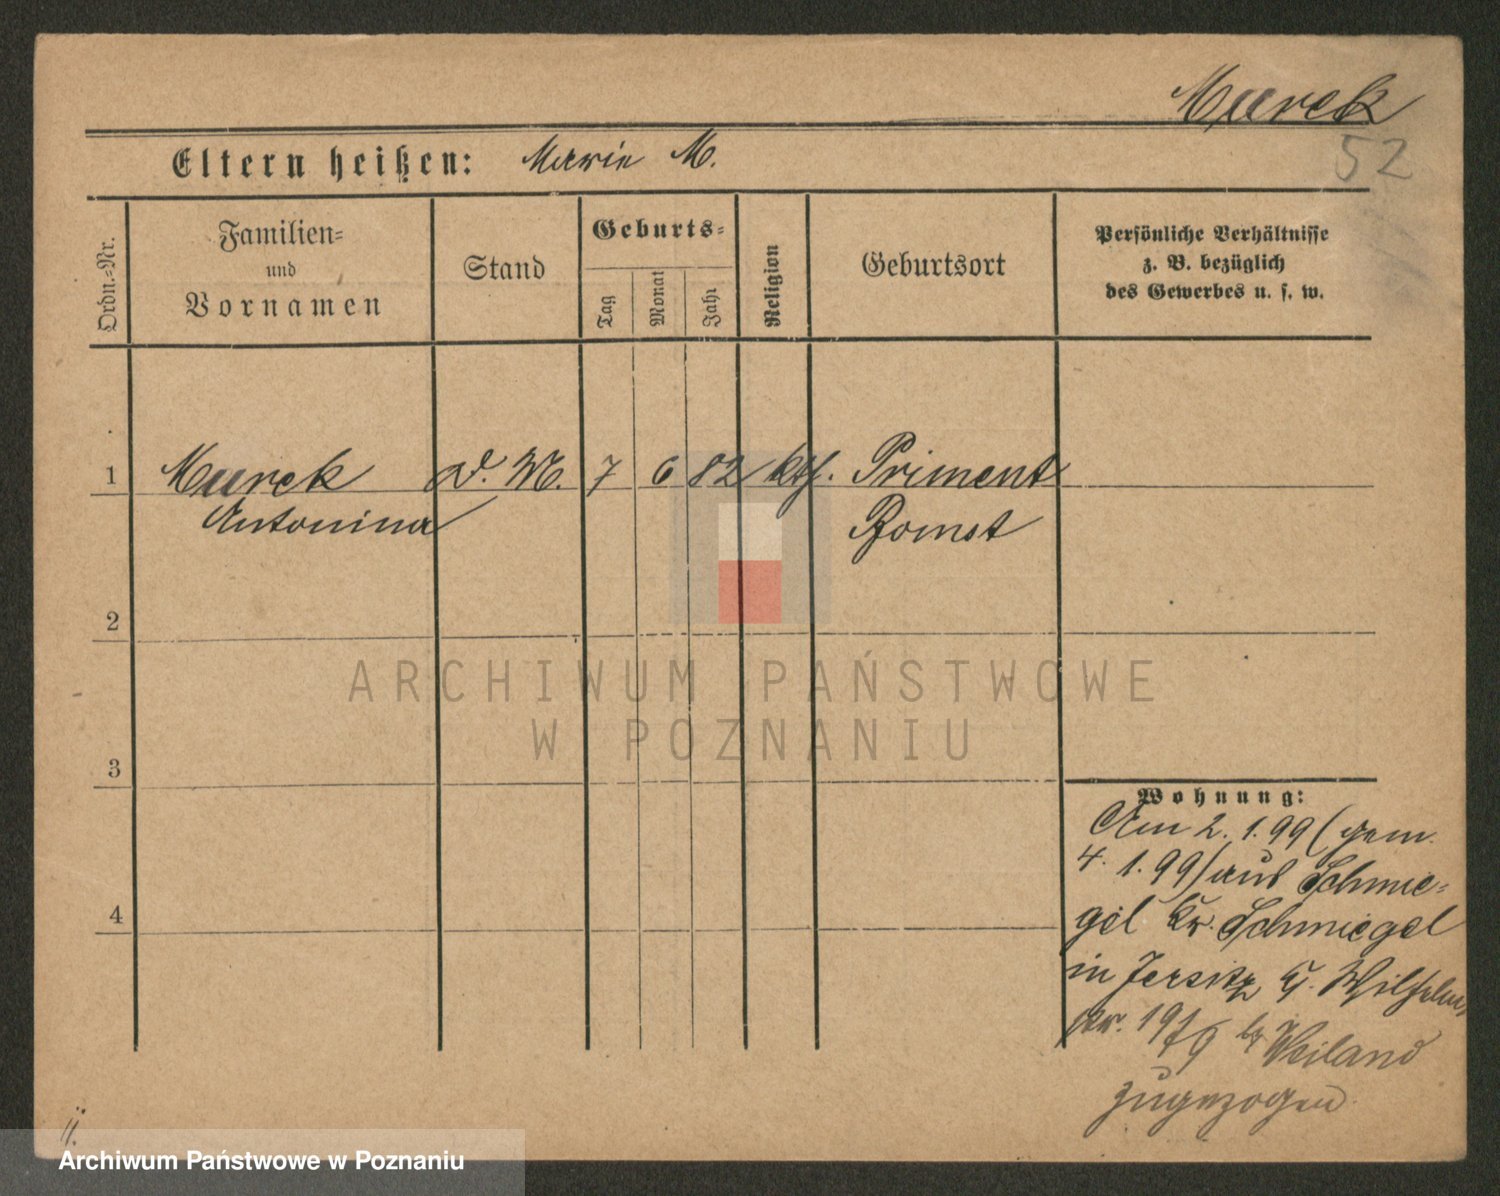 Murek
52
Eltern heißen: Marie M.
Ordn.-Nr.
Familien-
und
Vornamen
Stand
Geburts-
Tag
Monat
Jahr
Religion
Geburtsort
Persönliche Verhältnisse
z. B. bezüglich
des Gewerbes u. s. w.
1 Murek D. M. 7 6 82 kth. Priment
Antonina Bomst
2
ARCHIWUM PAŃSTWOWE
W POZNANIU
3
Wohnung:
Am 2. 1. 99 (gem.
4. 1. 99) aus Schmie-
gel Kr. Schmiegel
in Jersitz Gr. Wilhelm
str. 19 Weiland
zugezogen
4
Archiwum Państwowe w Poznaniu